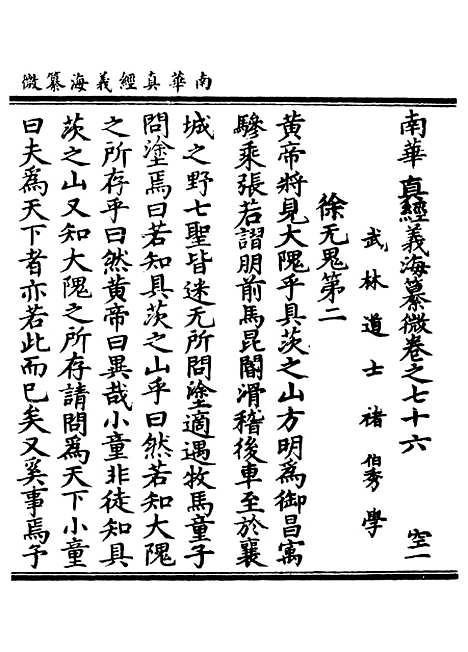 南華真經義海纂微
南華真經義海纂微卷之七十六 空一
武林道士褚伯秀學
徐无鬼第二
黃帝將見大隗乎具茨之山方明爲御昌㝢
驂乘張若謵朋前馬昆閽滑稽後車至於襄
城之野七聖皆迷无所問塗適遇牧馬童子
問塗焉曰若知具茨之山乎曰然若知大隗
之所存乎曰然黃帝曰異哉小童非徒知具
茨之山又知大隗之所存請問爲天下小童
曰夫爲天下者亦若此而已矣又奚事焉予